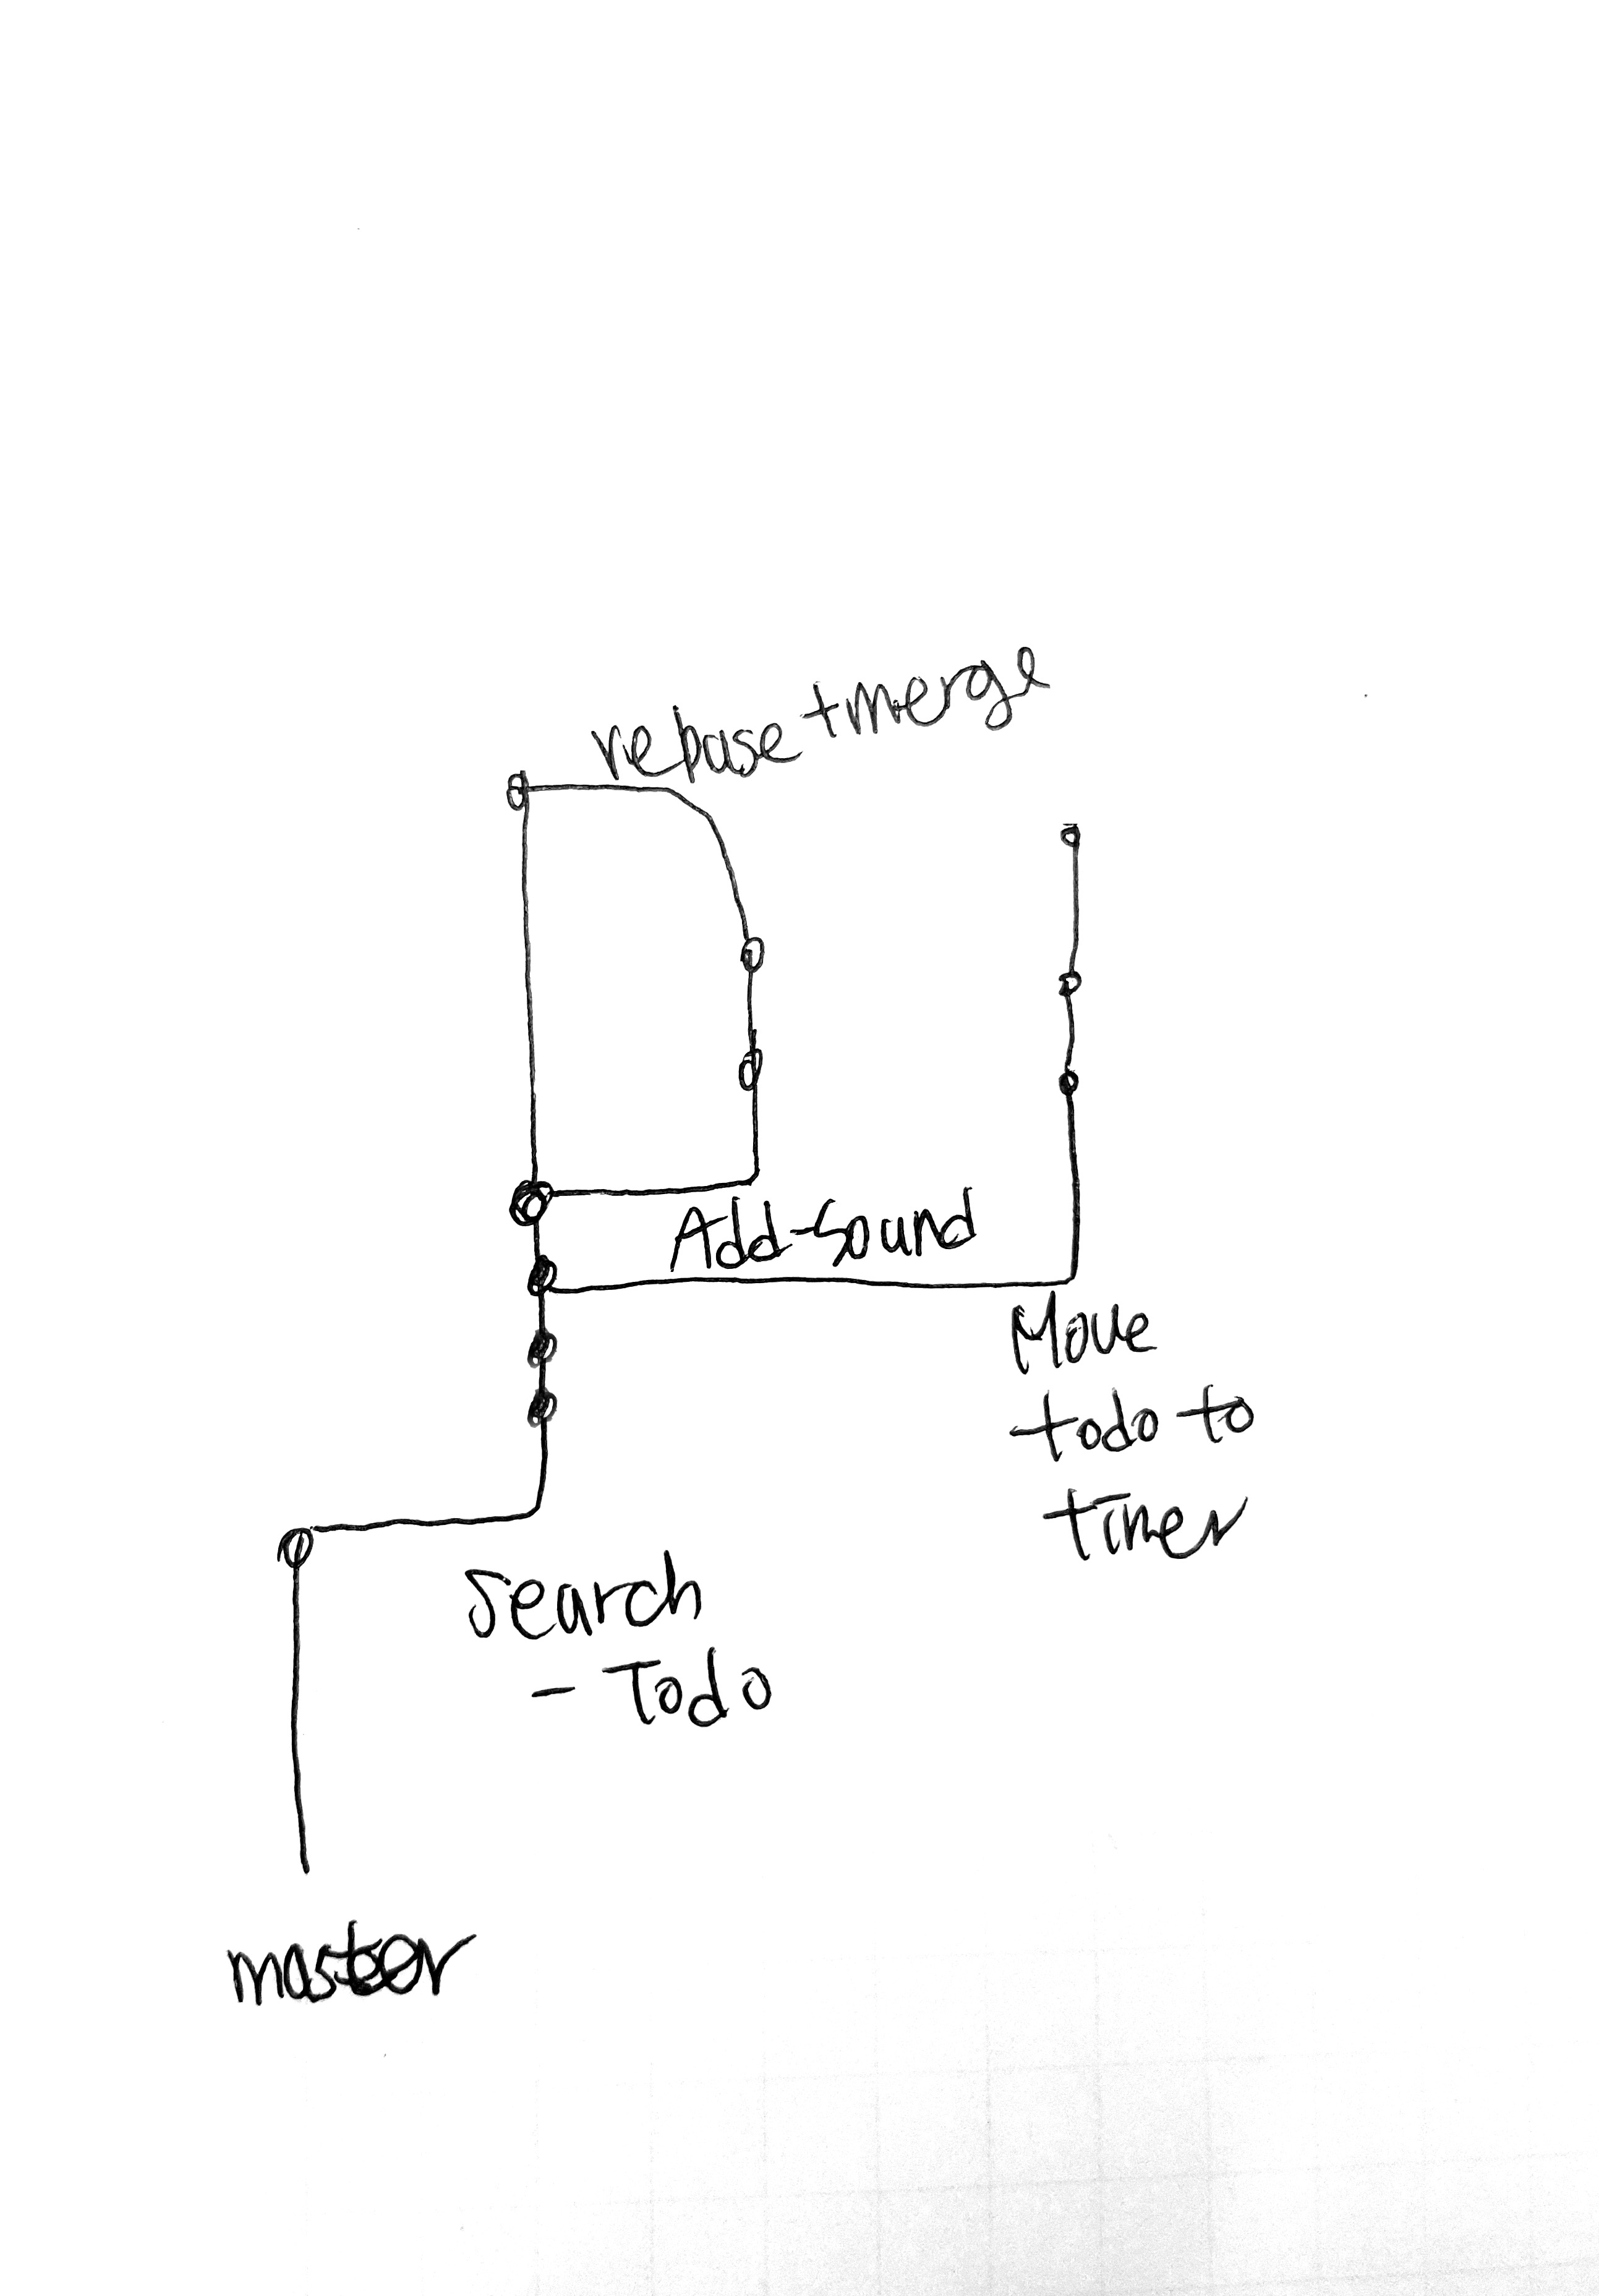 rebase + merge
Add-Sound
Move
todo to
timer
Search
- Todo
master